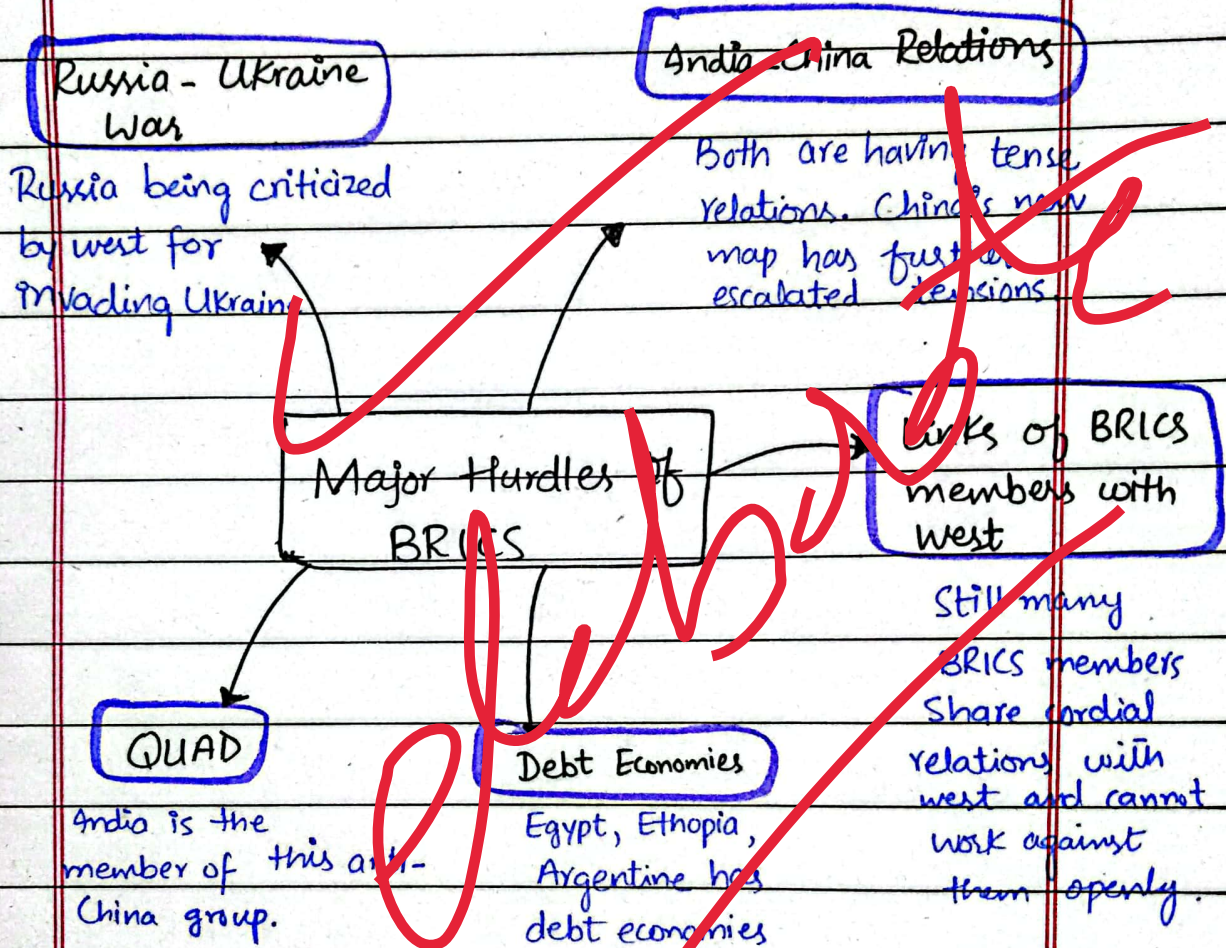 Russia - Ukraine
War
Russia being criticized
by west for
invading Ukraine
India-China Relations
Both are having tense
relations. China's new
map has further
escalated tensions.
Major Hurdles of
BRICS
Links of BRICS
members with
west
Still many
BRICS members
Share cordial
relations with
west and cannot
work against
them openly.
QUAD
India is the
member of this anti-
China group.
Debt Economies
Egypt, Ethopia,
Argentine has
debt economies
elaborate